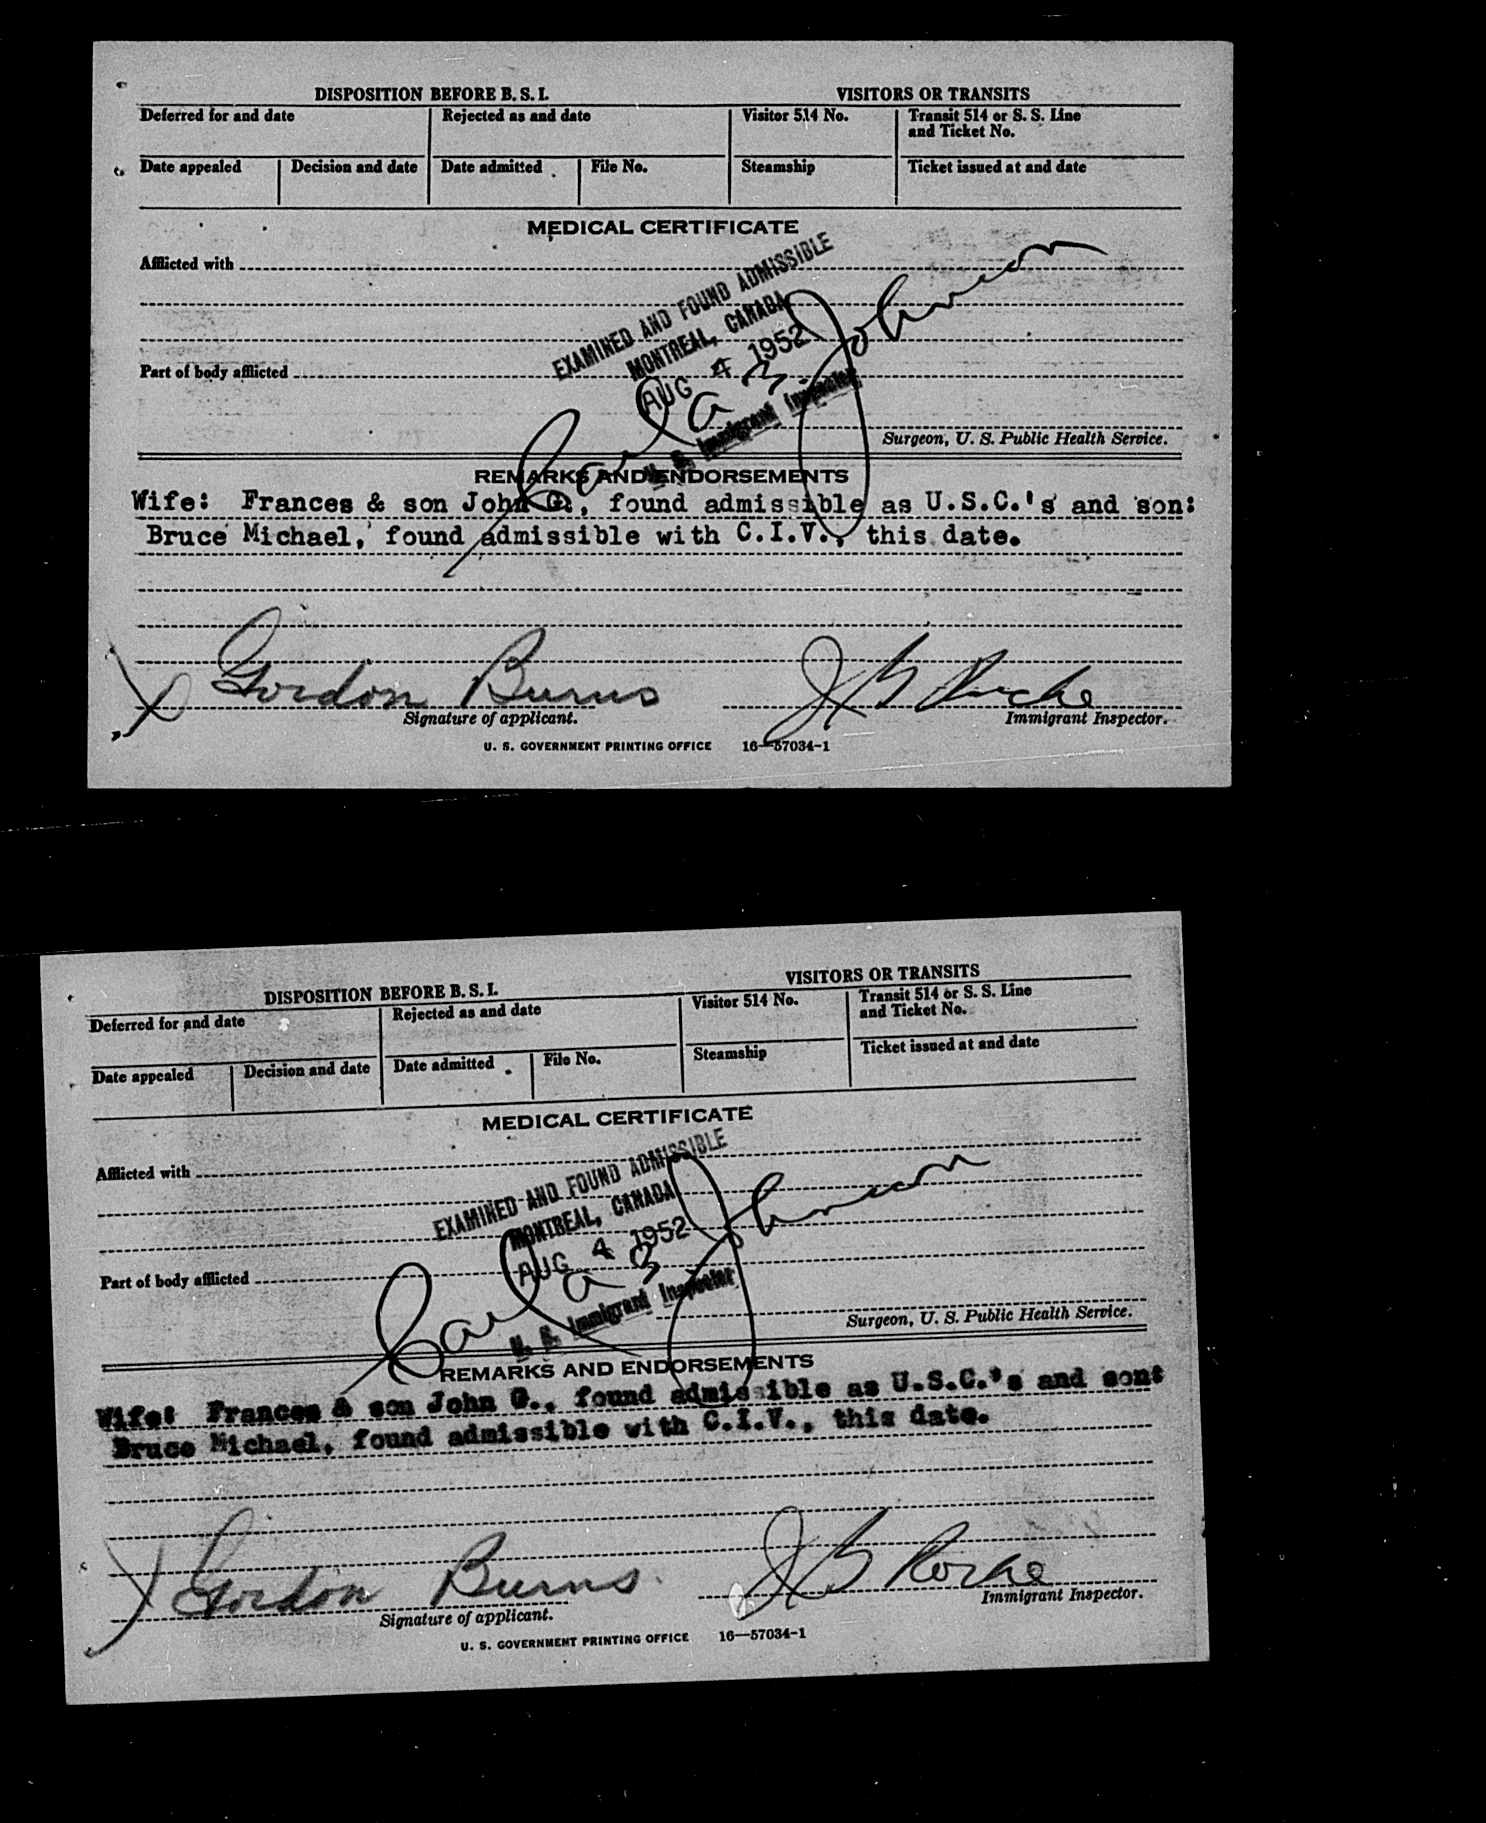 DISPOSITION BEFORE B. S. I.
VISITORS OR TRANSITS
Deferred for and date
Rejected as and date
Visitor 514 No.
Transit 514 or S. S. Line
and Ticket No.
Date appealed
Decision and date
Date admitted
File No.
Steamship
Ticket issued at and date
MEDICAL CERTIFICATE
Afflicted with
EXAMINED AND FOUND ADMISSIBLE
MONTREAL, CANADA
AUG 4 1952
Johnson
Part of body afflicted
U. S. Immigrant Inspector
Surgeon, U. S. Public Health Service.
REMARKS AND ENDORSEMENTS
Wife: Frances & son John G., found admissible as U.S.C.'s and son:
Bruce Michael, found admissible with C.I.V., this date.
X Gordon Burns
Signature of applicant.
Immigrant Inspector.
U. S. GOVERNMENT PRINTING OFFICE 16—57034-1
DISPOSITION BEFORE B. S. I.
VISITORS OR TRANSITS
Deferred for and date
Rejected as and date
Visitor 514 No.
Transit 514 or S. S. Line
and Ticket No.
Date appealed
Decision and date
Date admitted
File No.
Steamship
Ticket issued at and date
MEDICAL CERTIFICATE
Afflicted with
EXAMINED AND FOUND ADMISSIBLE
MONTREAL, CANADA
AUG 4 1952
Johnson
Part of body afflicted
U. S. Immigrant Inspector
Surgeon, U. S. Public Health Service.
REMARKS AND ENDORSEMENTS
Wife: Frances & son John G., found admissible as U.S.C.'s and son:
Bruce Michael, found admissible with C.I.V., this date.
X Gordon Burns
Signature of applicant.
Immigrant Inspector.
U. S. GOVERNMENT PRINTING OFFICE 16—57034-1